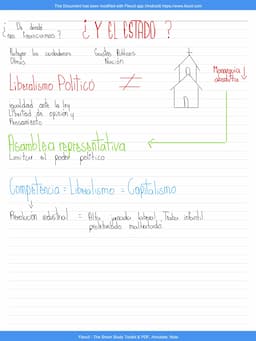 This Document has been modified with Flexcil app (Android) https://www.flexcil.com
¿ De donde nos financiamos ?
¿ Y EL ESTADO ?
Proteger los ciudadanos
Obras
Gastos Públicos
Nación
Liberalismo Político ≠
Monarquía absoluta ↓
igualdad ante la ley
Libertad de opinión y
Pensamiento
Asamblea representativa
Limitar el poder político
Competencia = Liberalismo = Capitalismo
Revolución industrial =
infantil
proletariado maltratado
Flexcil - The Smart Study Toolkit & PDF, Annotate, Note